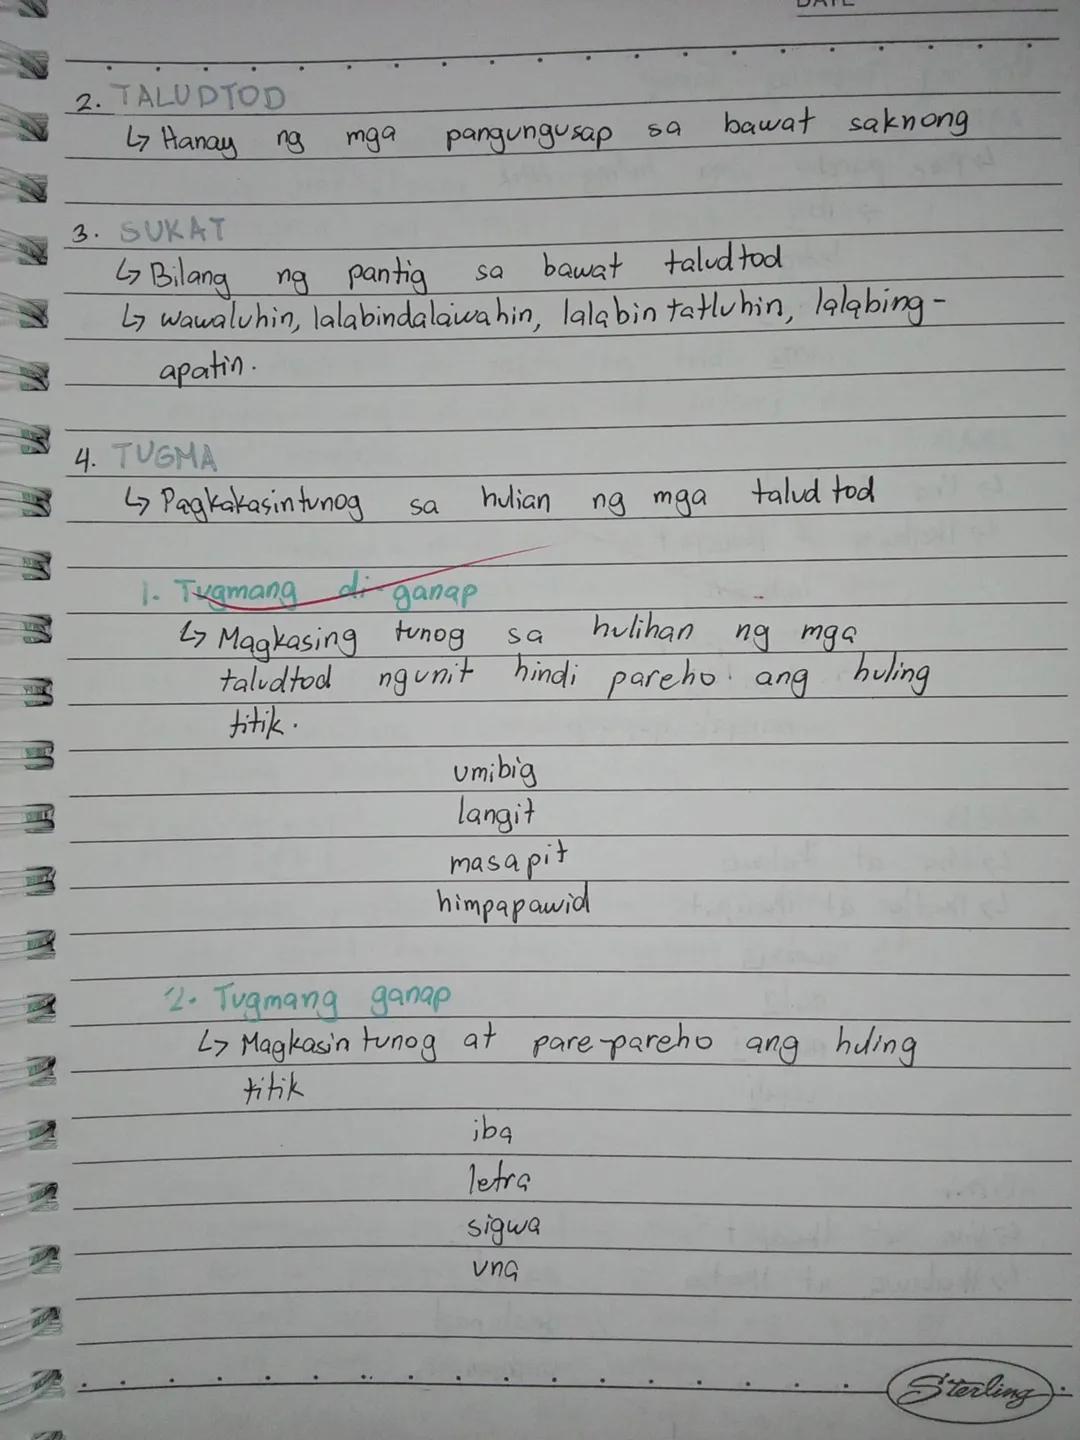 DATE
2. TALUDTOD
↳ Hanay ng mga pangungusap sa bawat saknong
3. SUKAT
↳ Bilang ng pantig sa bawat taludtod
↳ wawaluhin, lalabindalawahin, lalabin tatluhin, lalabing-
apatin.
4. TUGMA
↳ Pagkakasintunog sa hulian ng mga talud tod
1. Tugmang di-ganap
↳ Magkasing tunog sa hulihan ng mga
taludtod ngunit hindi pareho ang huling
titik.
umibig
langit
masapit
himpapawid
2. Tugmang ganap
↳ Magkasin tunog at pare-pareho ang huling
titik
iba
letra
sigwa
una
Sterling